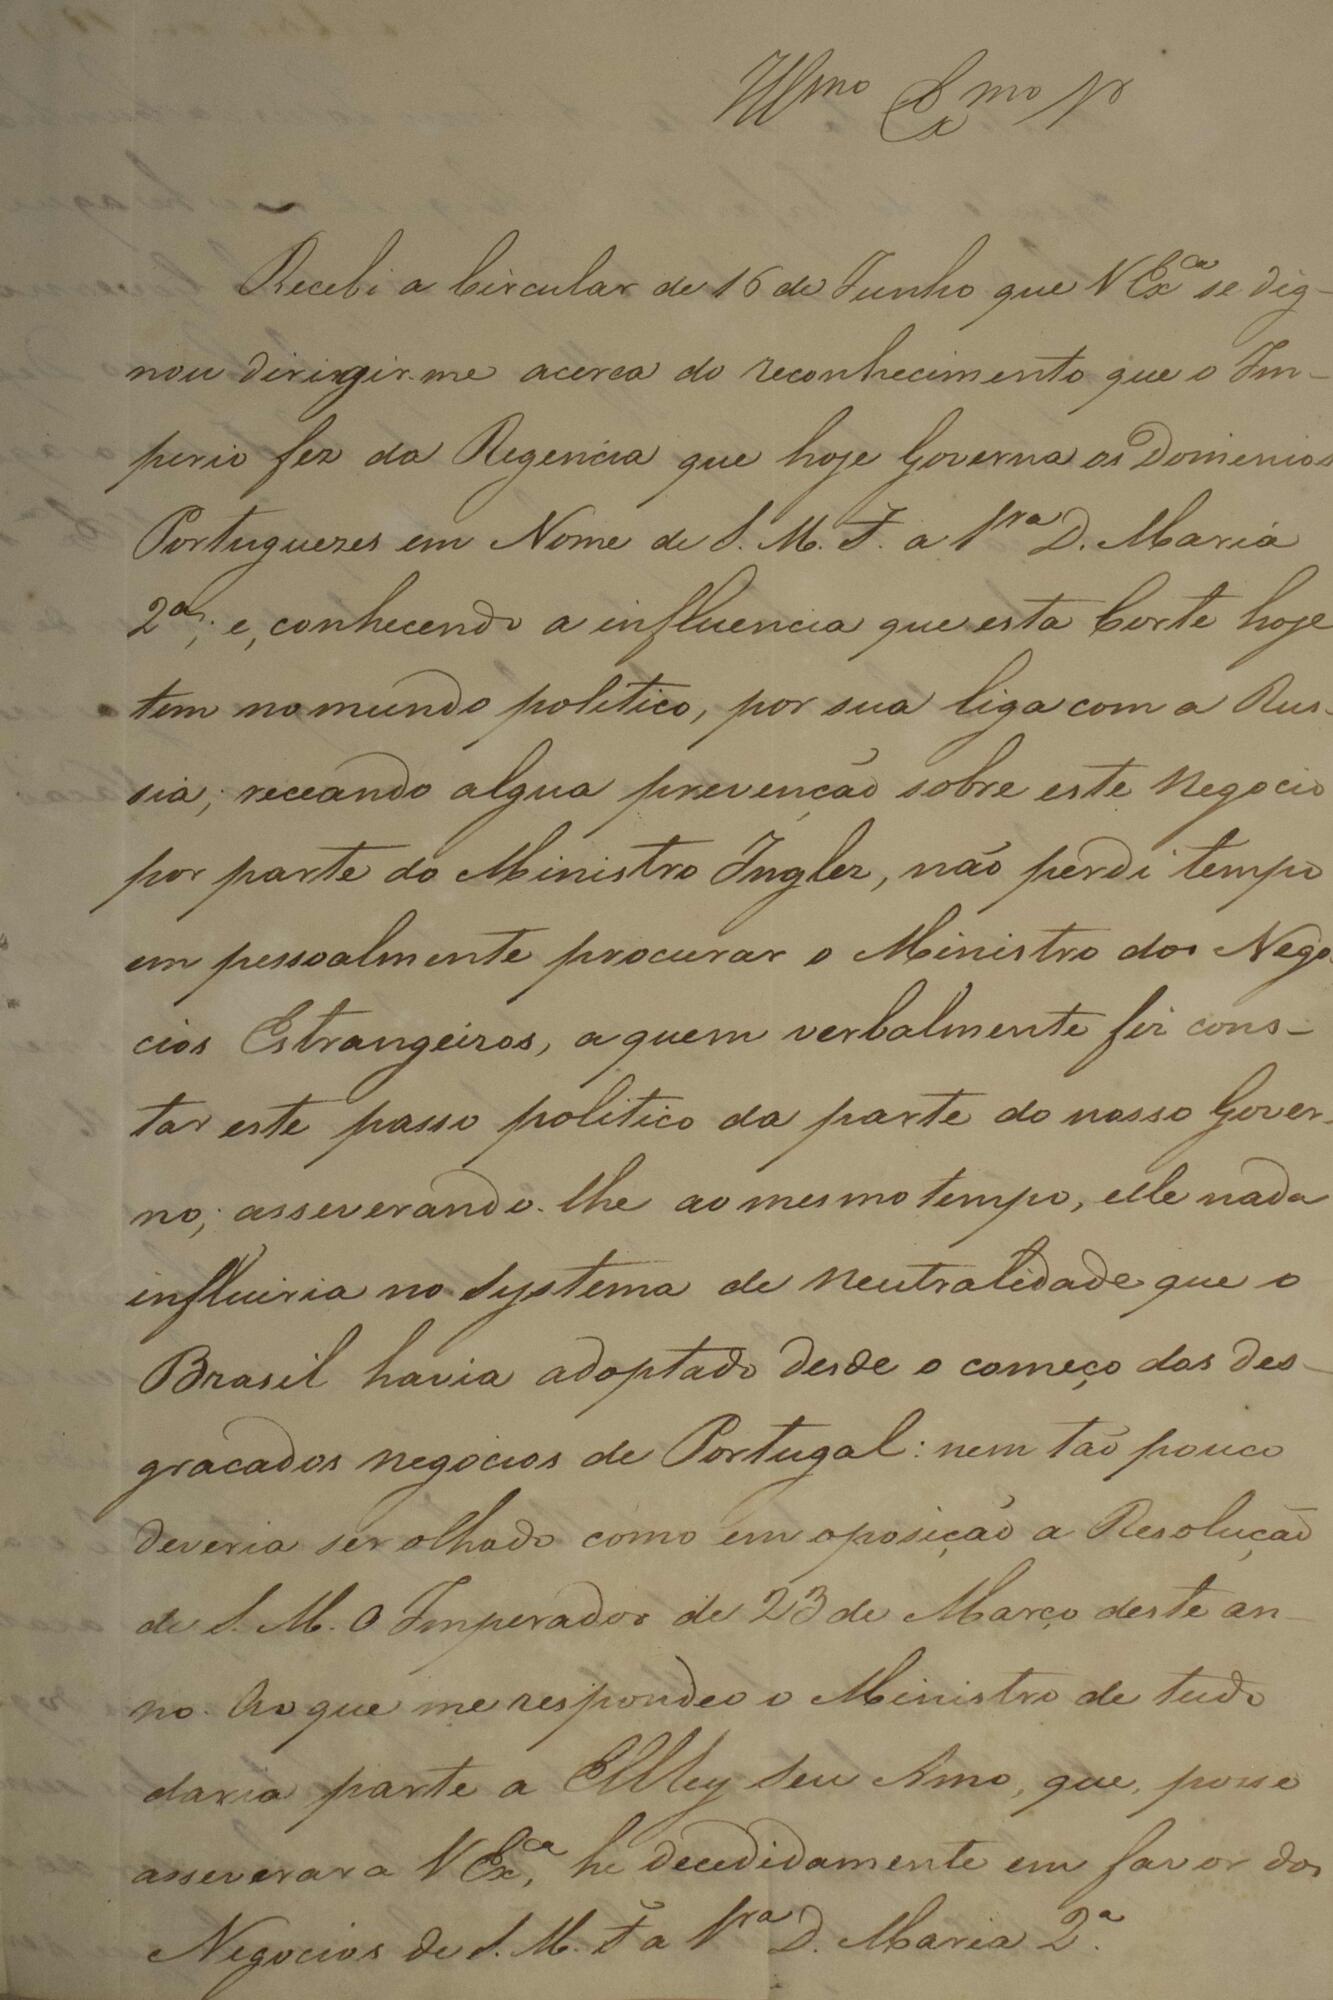 Illmo Exmo Sr
Recebi a Circular de 16 de Junho que V Exca se dig-
nou dirigir-me acerca do reconhecimento que o Im-
perio fez da Regencia que hoje Governa os Dominios
Portuguezes em Nome de S. M. F. a Sra D. Maria
2a; e, conhecendo a influencia que esta Corte hoje
tem no mundo politico, por sua liga com a Rus-
sia; receando algua prevenção sobre este Negocio
por parte do Ministro Inglez, não perdi tempo
em pessoalmente procurar o Ministro dos Nego-
cios Estrangeiros, a quem verbalmente fiz cons-
tar este passo politico da parte do nosso Gover-
no; asseverando-lhe ao mesmo tempo, elle nada
influiria no Systema de Neutralidade que o
Brasil havia adoptado desde o começo dos des-
graçados negocios de Portugal: nem tão pouco
deveria ser olhado como em oposição a Resolução
de S. M. O Imperador de 23 de Março deste an-
no. Ao que me respondeo o Ministro de tudo
daria parte a ElRey Seu Amo, que, posso
asseverar a V Exca, he decedidamente em favor dos
Negocios de S. M. F a Sra D. Maria 2a.